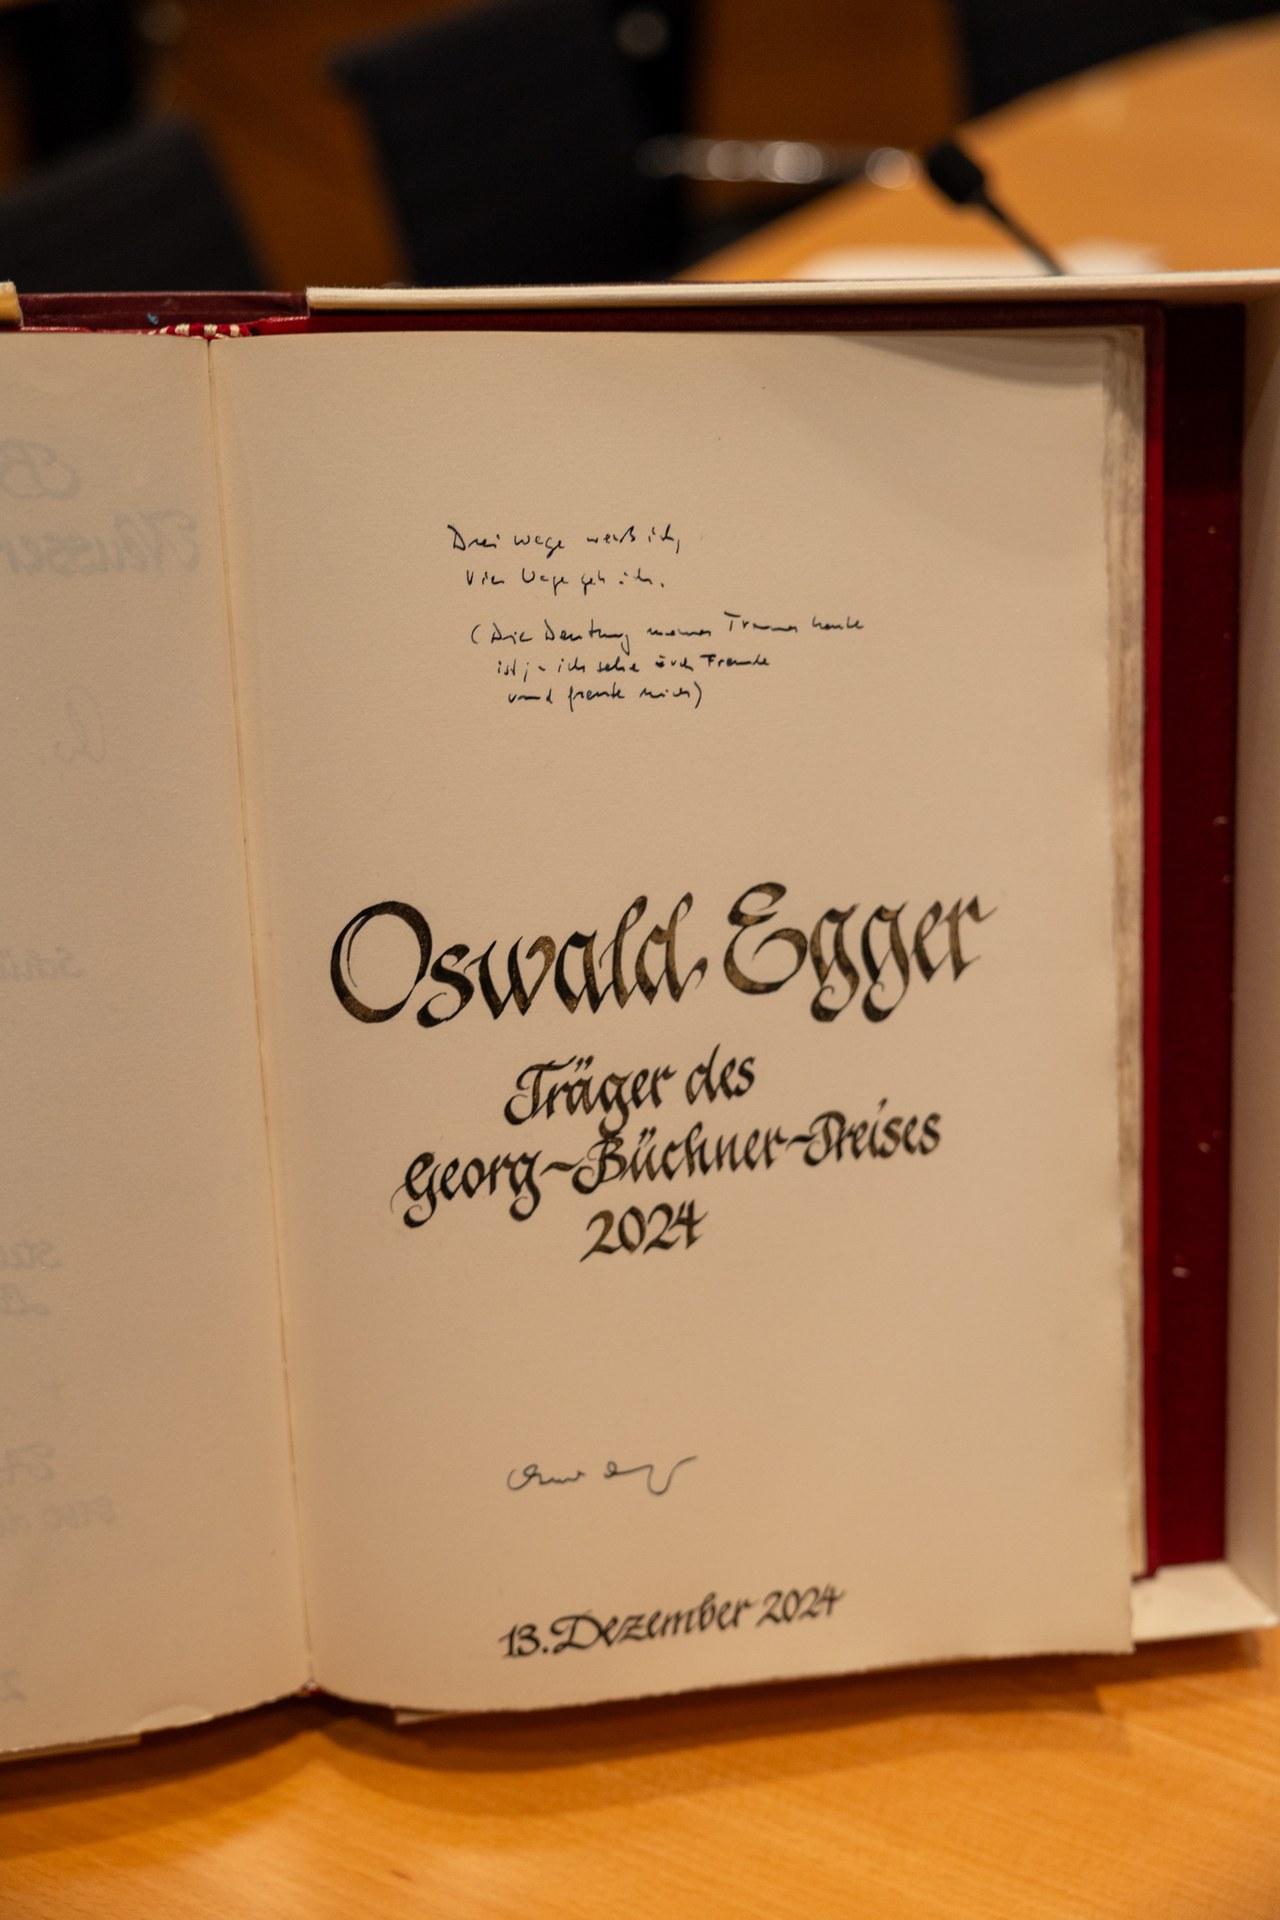 Drei Wege weiß ich,
vier Wege geh ich.
(Die Deutung meines Traumes heute
ist, – ich sehe euch Freunde
und freute mich)
Oswald Egger
Träger des
Georg-Büchner-Preises
2024
13. Dezember 2024